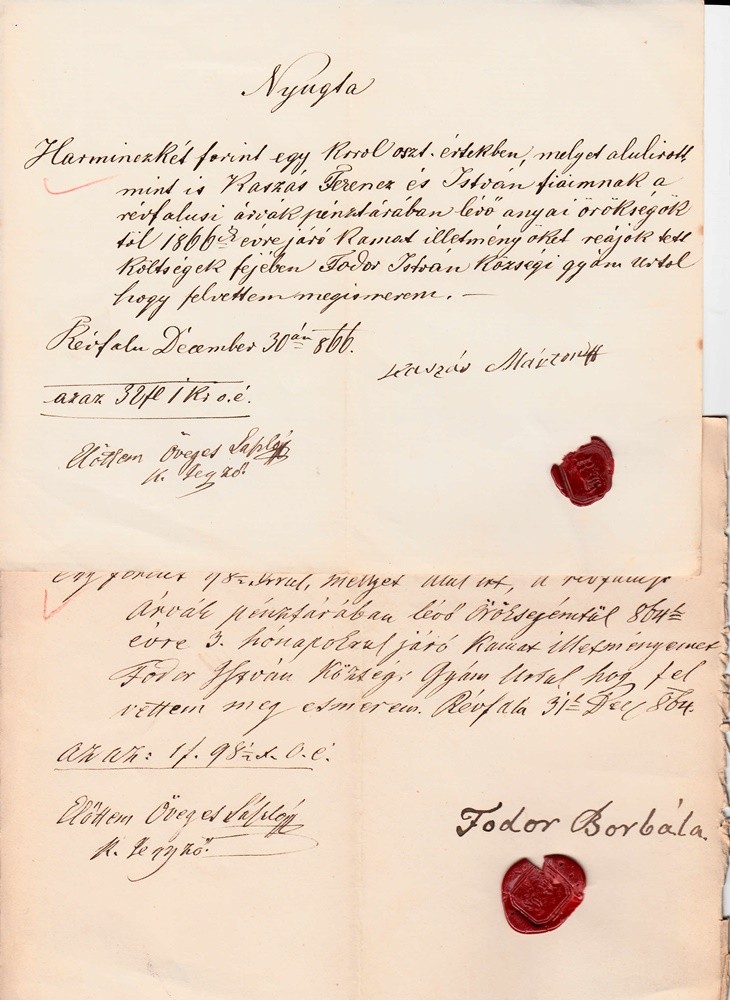 Nyugta
Harminczkét forint egy Krról oszt. értekben, melyet alulirott,
mint is Kaszás Ferencz és István fiáimnak a
révfalusi árvák pénztárában lévő anyai örökségök
től 1866ik évre járó Kamat illetmény öket reájok tett
költségek fejében Fodor István Községi gyám Urtol
hogy felvettem megismerem. —
Révfalu December 30án 866.
Kaszás Márton
azaz 32 fl 1 Kr o. é.
Előttem Öveges
k. Jegyző.
egy forint 98½ mellyet a
Árvák pénztárában lévő Örökségemtül 864k
évre 3. hónapokrul járó Kamat illetményemet
Fodor István Községi Gyám Urtul hogy fel
vettem meg esmerem. Révfalu 31k Dec 864.
azaz: 1 f. 98½ x. o. é.
Előttem Öveges
k. Jegyző.
Fodor Borbála.